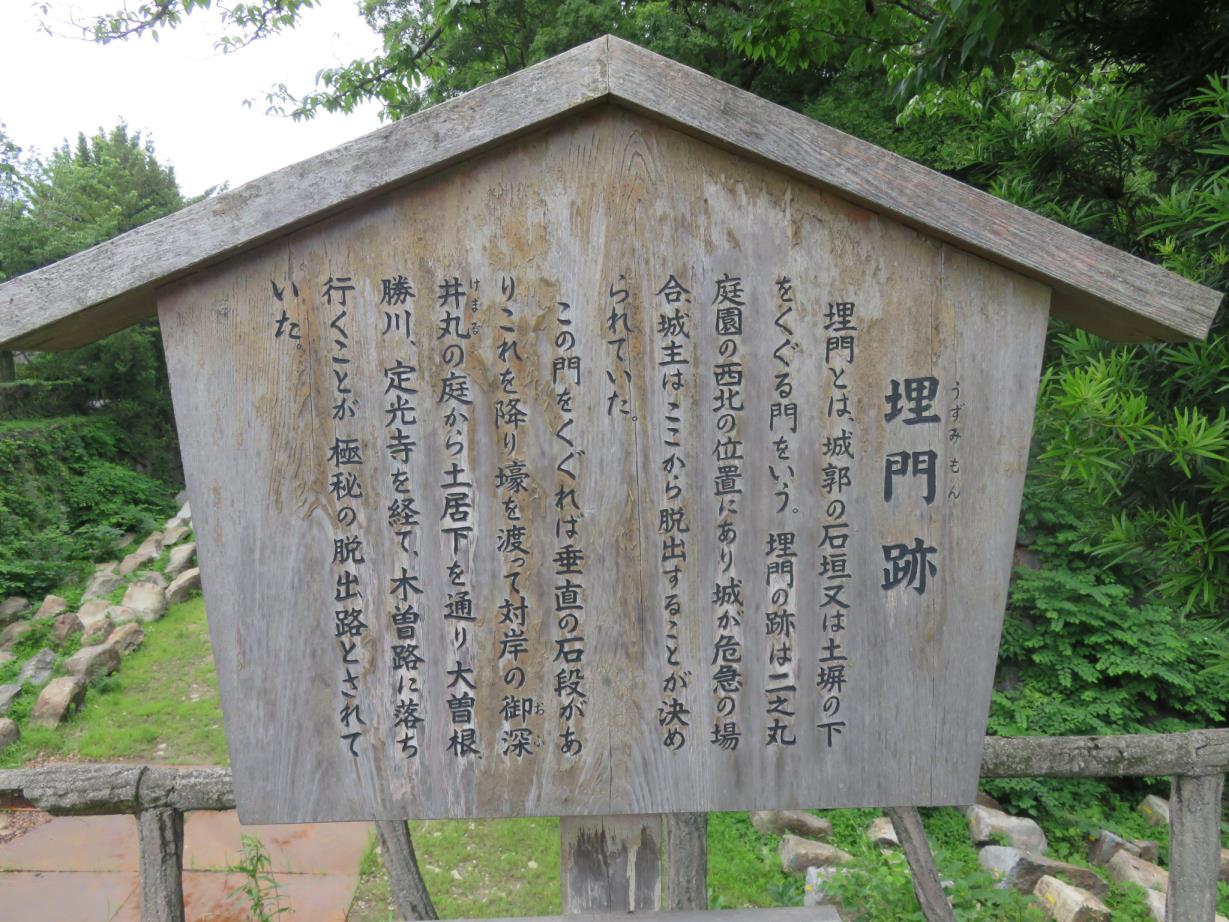 うずみもん
埋門跡
埋門とは、城郭の石垣又は土塀の下
をくぐる門をいう。埋門の跡は二之丸
庭園の西北の位置にあり城が危急の場
合、城主はここから脱出することが決め
られていた。
この門をくぐれは垂直の石段があ
りこれを降り壕を渡って対岸の御深
おふ
井丸の庭から土居下を通り大曽根、
けまる
勝川、定光寺を経て、木曽路に落ち
行くことが極秘の脱出路とされて
いた。